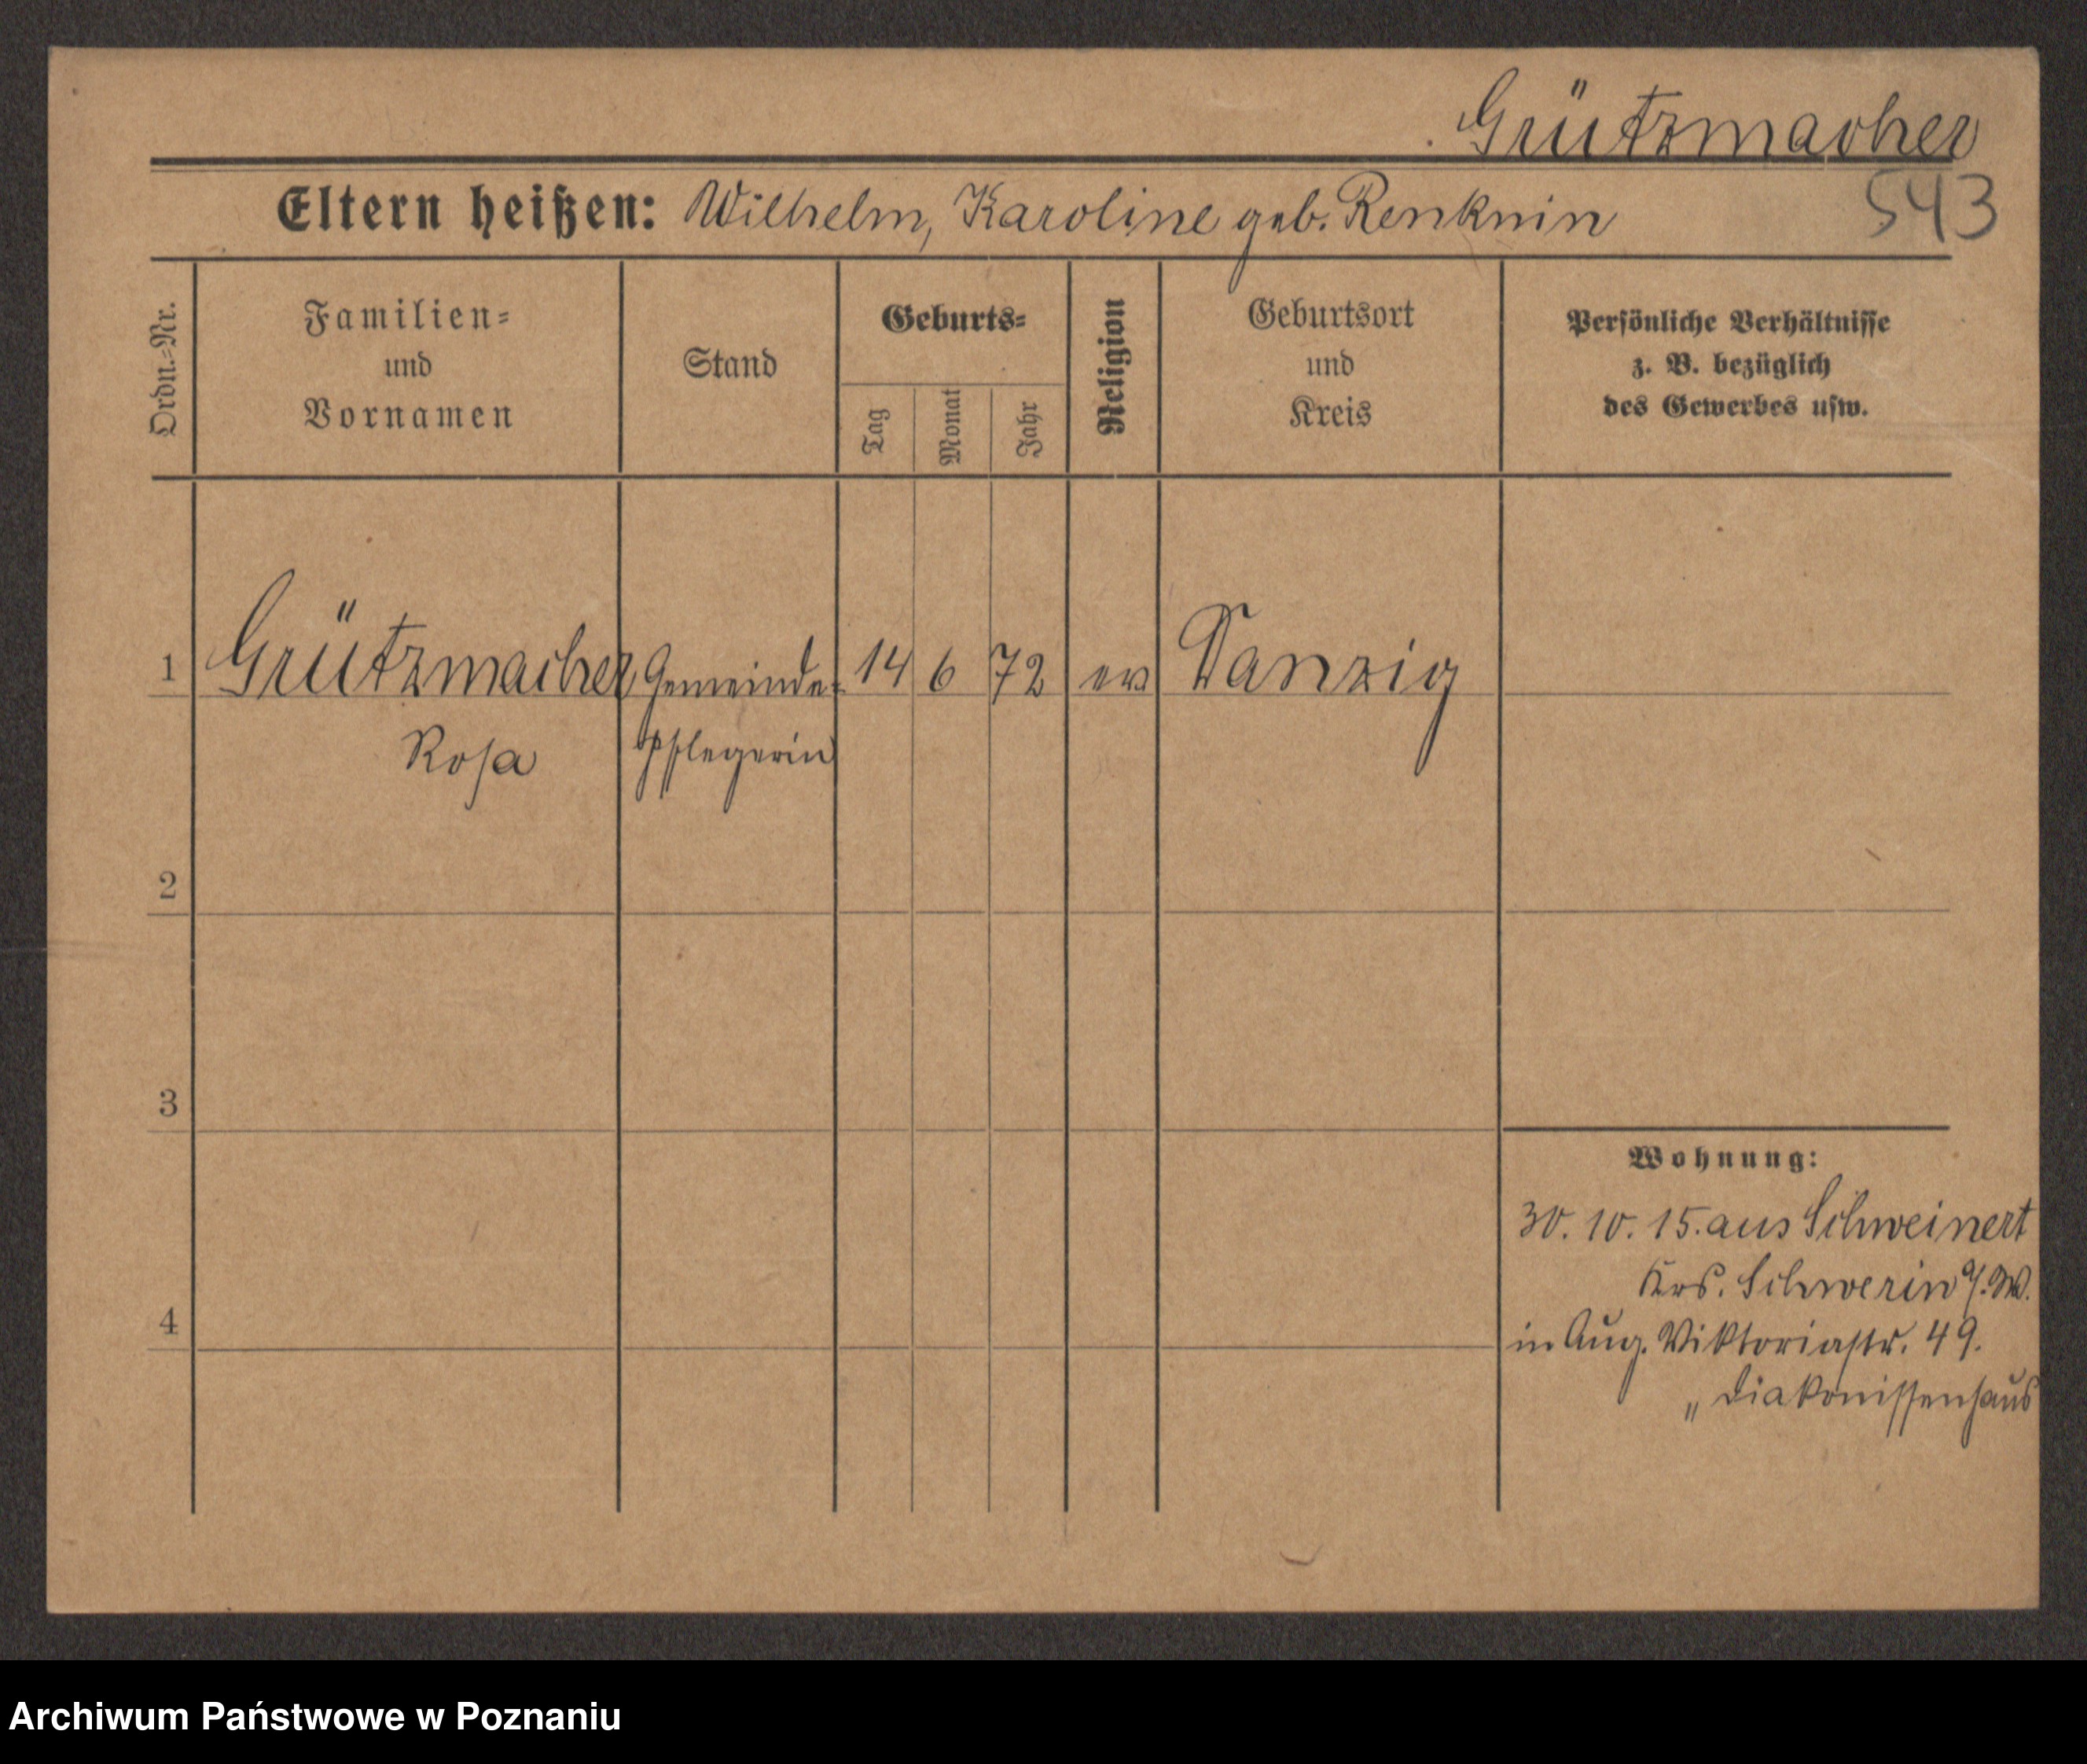 Grützmacher
Eltern heißen: Wilhelm, Karoline geb. Renknin
543
Ordn.-Nr.
Familien-
und
Vornamen
Stand
Geburts-
Tag
Monat
Jahr
Religion
Geburtsort
und
Kreis
Persönliche Verhältnisse
z. B. bezüglich
des Gewerbes usw.
1 Grützmacher Gemeinde- 14 6 72 ev Danzig
Rosa pflegerin
2
3
Wohnung:
30. 10. 15. aus Schweinert
Krs. Schwerin a/W.
4
in Aug. Viktoriastr. 49.
„ Diakonissenhaus
Archiwum Państwowe w Poznaniu